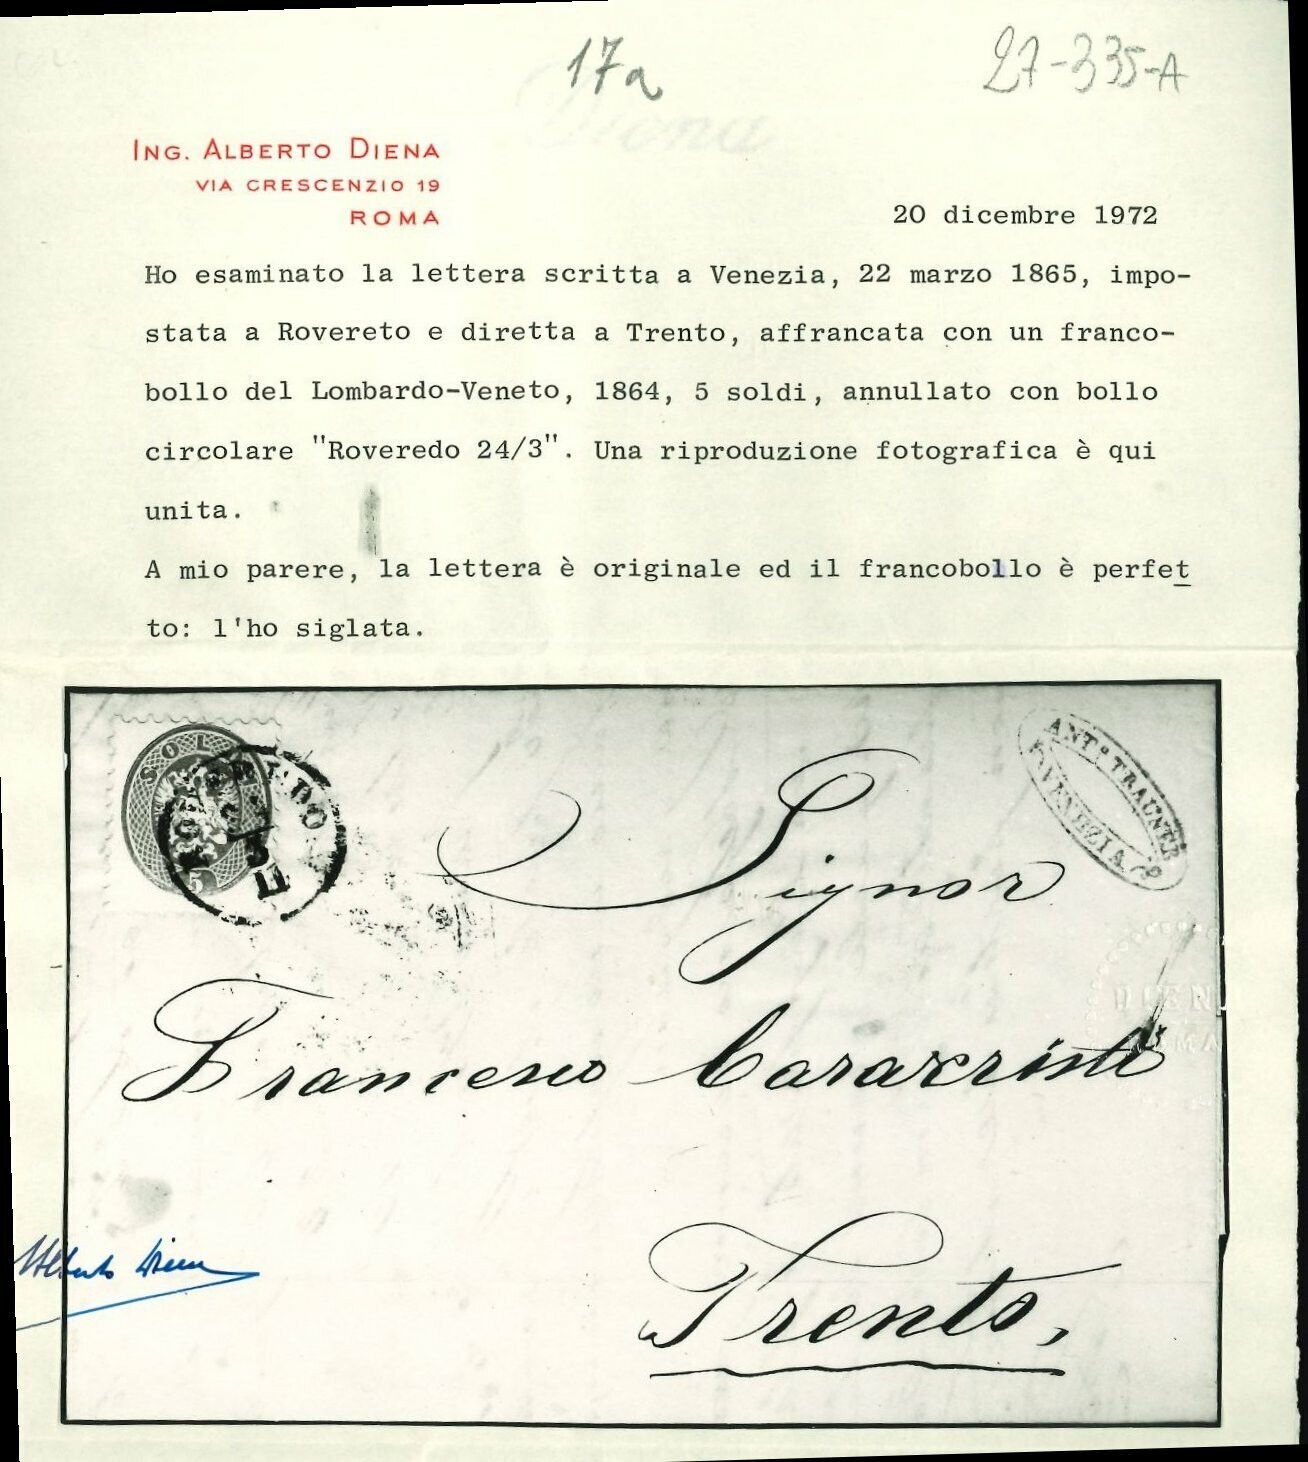 17a
27-335-A
Diena
ING. ALBERTO DIENA
VIA CRESCENZIO 19
ROMA
20 dicembre 1972
Ho esaminato la lettera scritta a Venezia, 22 marzo 1865, impo-
stata a Rovereto e diretta a Trento, affrancata con un franco-
bollo del Lombardo-Veneto, 1864, 5 soldi, annullato con bollo
circolare "Roveredo 24/3". Una riproduzione fotografica è qui
unita.
A mio parere, la lettera è originale ed il francobollo è perfet
to: l'ho siglata.
SOLDI
5
ROVEREDO
24
3
ANT.o TRAUNER
VENEZIA
Signor
Francesco
Trento,
DIENA
ROMA
Alberto Diena